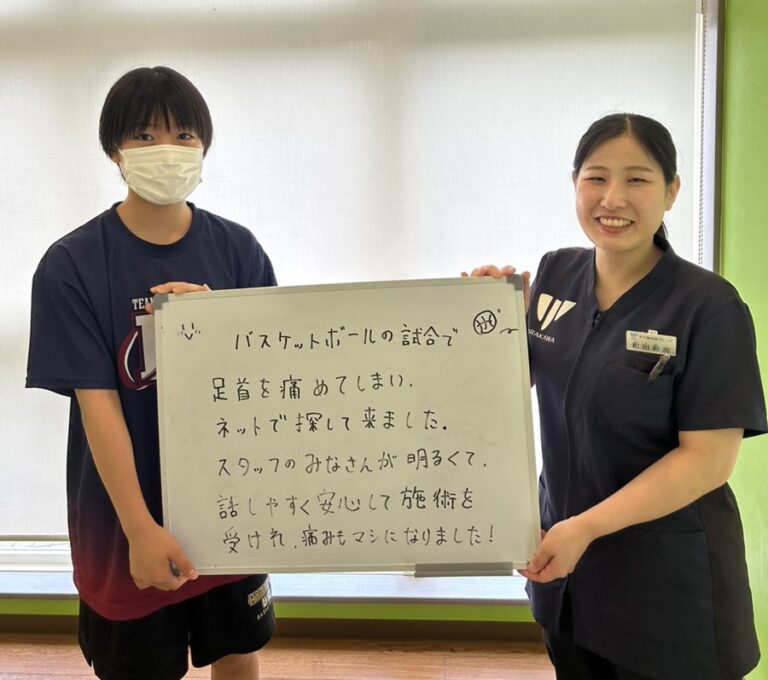 バスケットボールの試合で
足首を痛めてしまい、
ネットで探して来ました。
スタッフのみなさんが明るくて、
話しやすく安心して施術を
受けれ、痛みもマシになりました!
TEA
W
ARAKABA